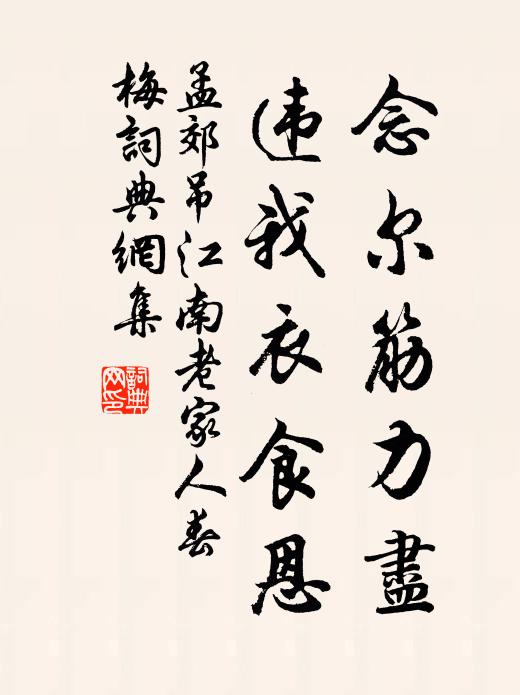 念尔筋力盡
违我衣食恩
孟郊吊江南老家人春
梅詞典網集
詞典网印